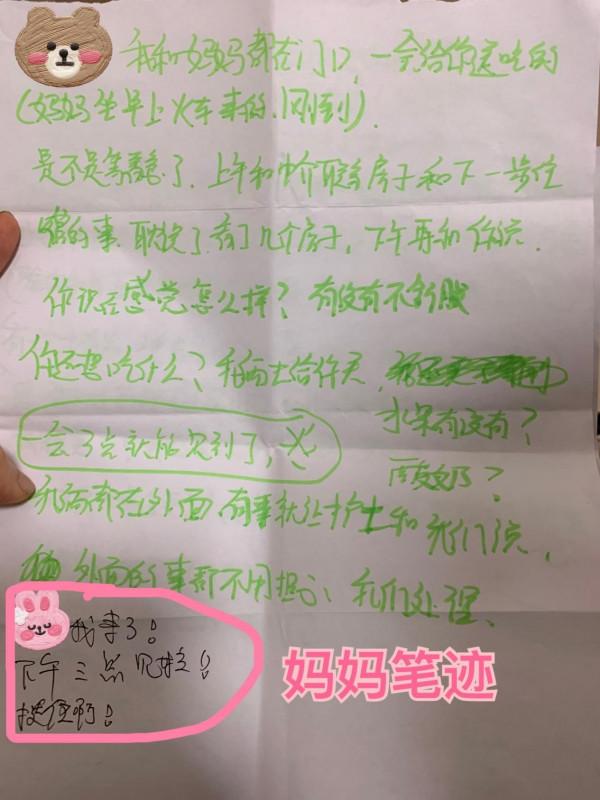 我和妈妈都在门口，一会给你送吃的
(妈妈坐早上火车来的，刚到).
是不是等着急了，上午和中介联系房子和下一步住
的事，耽误了，看了几个房子，下午再和你说.
你现在感觉怎么样？有没有不舒服
你还想吃什么？我马上给你买，
水果有没有？
一会3点就能见到了，
酸奶？
我俩都在外面有事就让护士和我们说，
外面的事都不用担心、我们处理.
我来了！
下午三点见娃！
挺住啊！
妈妈笔迹